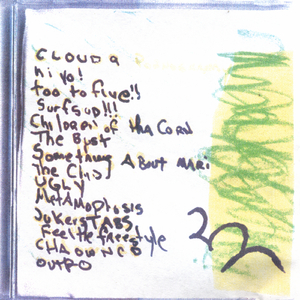 CLOUD 9
hi yo!
too to five!!
Surfs up!!!
Children of tha Corn
The Bust
Something About Mari
The Chis
UGLY
Metamophosis
JokersTABS
Feel the freestyle
CHA OWNCO
OUTRO
22